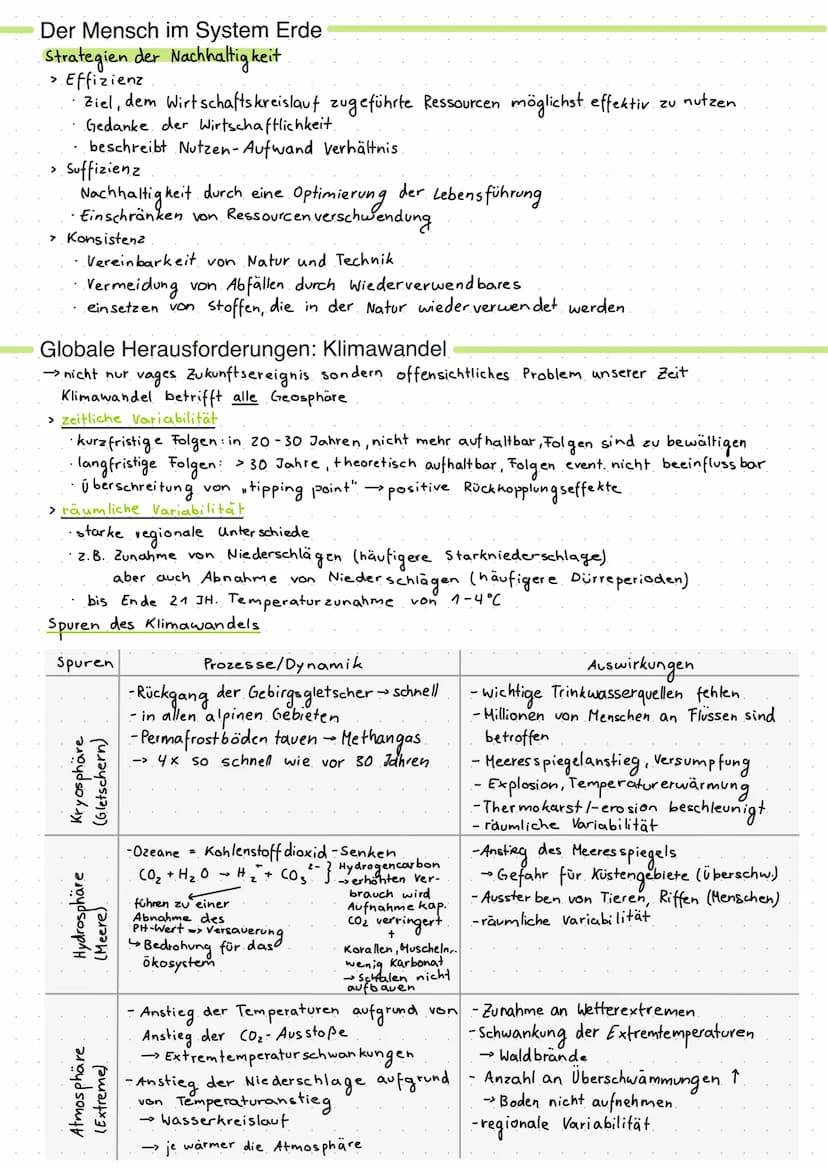 Der Mensch im System Erde
Strategien der Nachhaltigkeit
> Effizienz
· Ziel, dem Wirtschaftskreislauf zugeführte Ressourcen möglichst effektiv zu nutzen
· Gedanke der Wirtschaftlichkeit
· beschreibt Nutzen-Aufwand Verhältnis
> Suffizienz
Nachhaltigkeit durch eine Optimierung der Lebensführung
· Einschränken von Ressourcenverschwendung
> Konsistenz
· Vereinbarkeit von Natur und Technik
· Vermeidung von Abfällen durch Wiederverwendbares
· einsetzen von Stoffen, die in der Natur wiederverwendet werden
Globale Herausforderungen: Klimawandel
→ nicht nur vages Zukunftsereignis sondern offensichtliches Problem unserer Zeit
Klimawandel betrifft alle Geosphäre
> zeitliche Variabilität
· kurzfristige Folgen: in 20-30 Jahren, nicht mehr aufhaltbar, Folgen sind zu bewältigen
· langfristige Folgen: > 30 Jahre, theoretisch aufhaltbar, Folgen event. nicht beeinflussbar
· Überschreitung von „tipping point" → positive Rückhopplungseffekte
> räumliche Variabilität
· starke regionale Unterschiede
· z.B. Zunahme von Niederschlägen (häufigere Starkniederschlage)
aber auch Abnahme von Niederschlägen (häufigere Dürreperioden)
· bis Ende 21 JH. Temperaturzunahme von 1-4°C
Spuren des Klimawandels
Spuren
Prozesse/Dynamik
Auswirkungen
Kryosphäre
(Gletschern)
- Rückgang der Gebirgsgletscher → schnell
- in allen alpinen Gebieten
- Permafrostböden tauen → Methangas
-> 4x so schnell wie vor 30 Jahren
- wichtige Trinkwasserquellen fehlen
- Millionen von Menschen an Flüssen sind
betroffen
- Meeresspiegelanstieg, Versumpfung
- Explosion, Temperaturerwärmung
- Thermokarst/-erosion beschleunigt
- räumliche Variabilität
Hydrosphäre
(Meere)
- Ozeane = Kohlenstoffdioxid-Senken
CO₂ + H₂O → H₂⁺ + CO₃²⁻ }
führen zu einer
Abnahme des
PH-Wert => Versauerung
↳ Bedrohung für das
ökosystem
Hydrogencarbon
→ erhöhten Ver-
brauch wird
Aufnahmekap.
CO₂ verringert
+
Korallen, Muscheln,..
wenig Karbonat
→ Schalen nicht
aufbauen
- Anstieg des Meeresspiegels
→ Gefahr für Küstengebiete (Überschw.)
- Aussterben von Tieren, Riffen (Menschen)
- räumliche Variabilität
Atmosphäre
(Extreme)
- Anstieg der Temperaturen aufgrund von
Anstieg der CO₂-Ausstoße
→ Extremtemperaturschwankungen
- Anstieg der Niederschlage aufgrund
von Temperaturanstieg
→ Wasserkreislauf
→ je wärmer die Atmosphäre
- Zunahme an Wetterextremen
- Schwankung der Extremtemperaturen
→ Waldbrände
- Anzahl an Überschwämmungen ↑
→ Boden nicht aufnehmen
- regionale Variabilität